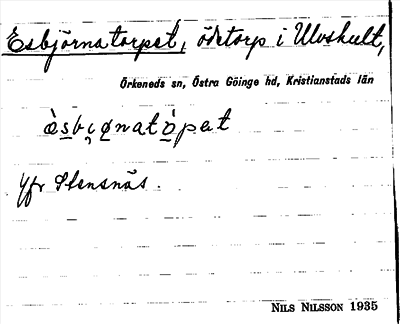 Esbjörnatorpet, ödetorp i Ulvshult,
Örkeneds sn, Östra Göinge hd, Kristianstads län
Jfr Stensnäs.
NILS NILSSON 1935